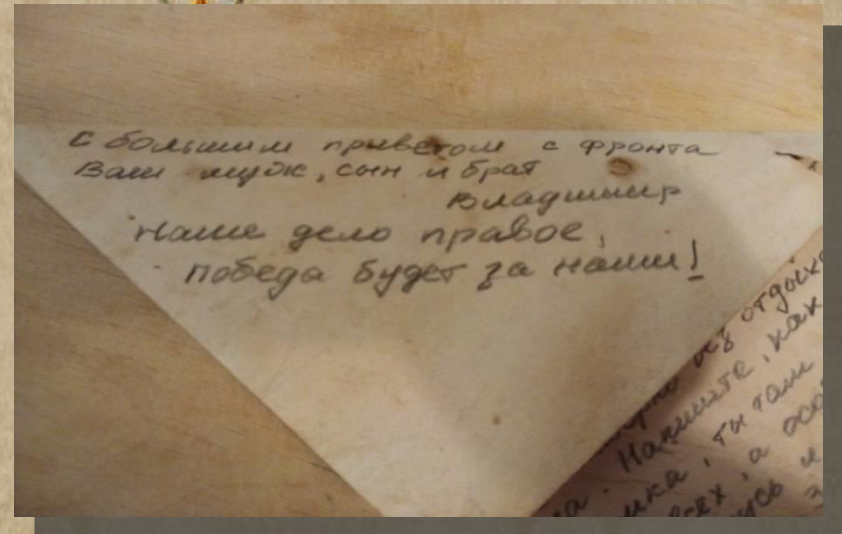 С большим приветом с фронта
Ваш муж, сын и брат
Владимир
Наше дело правое,
победа будет за нами!
без отдыха
Напишите, как
, ты там
всех, а